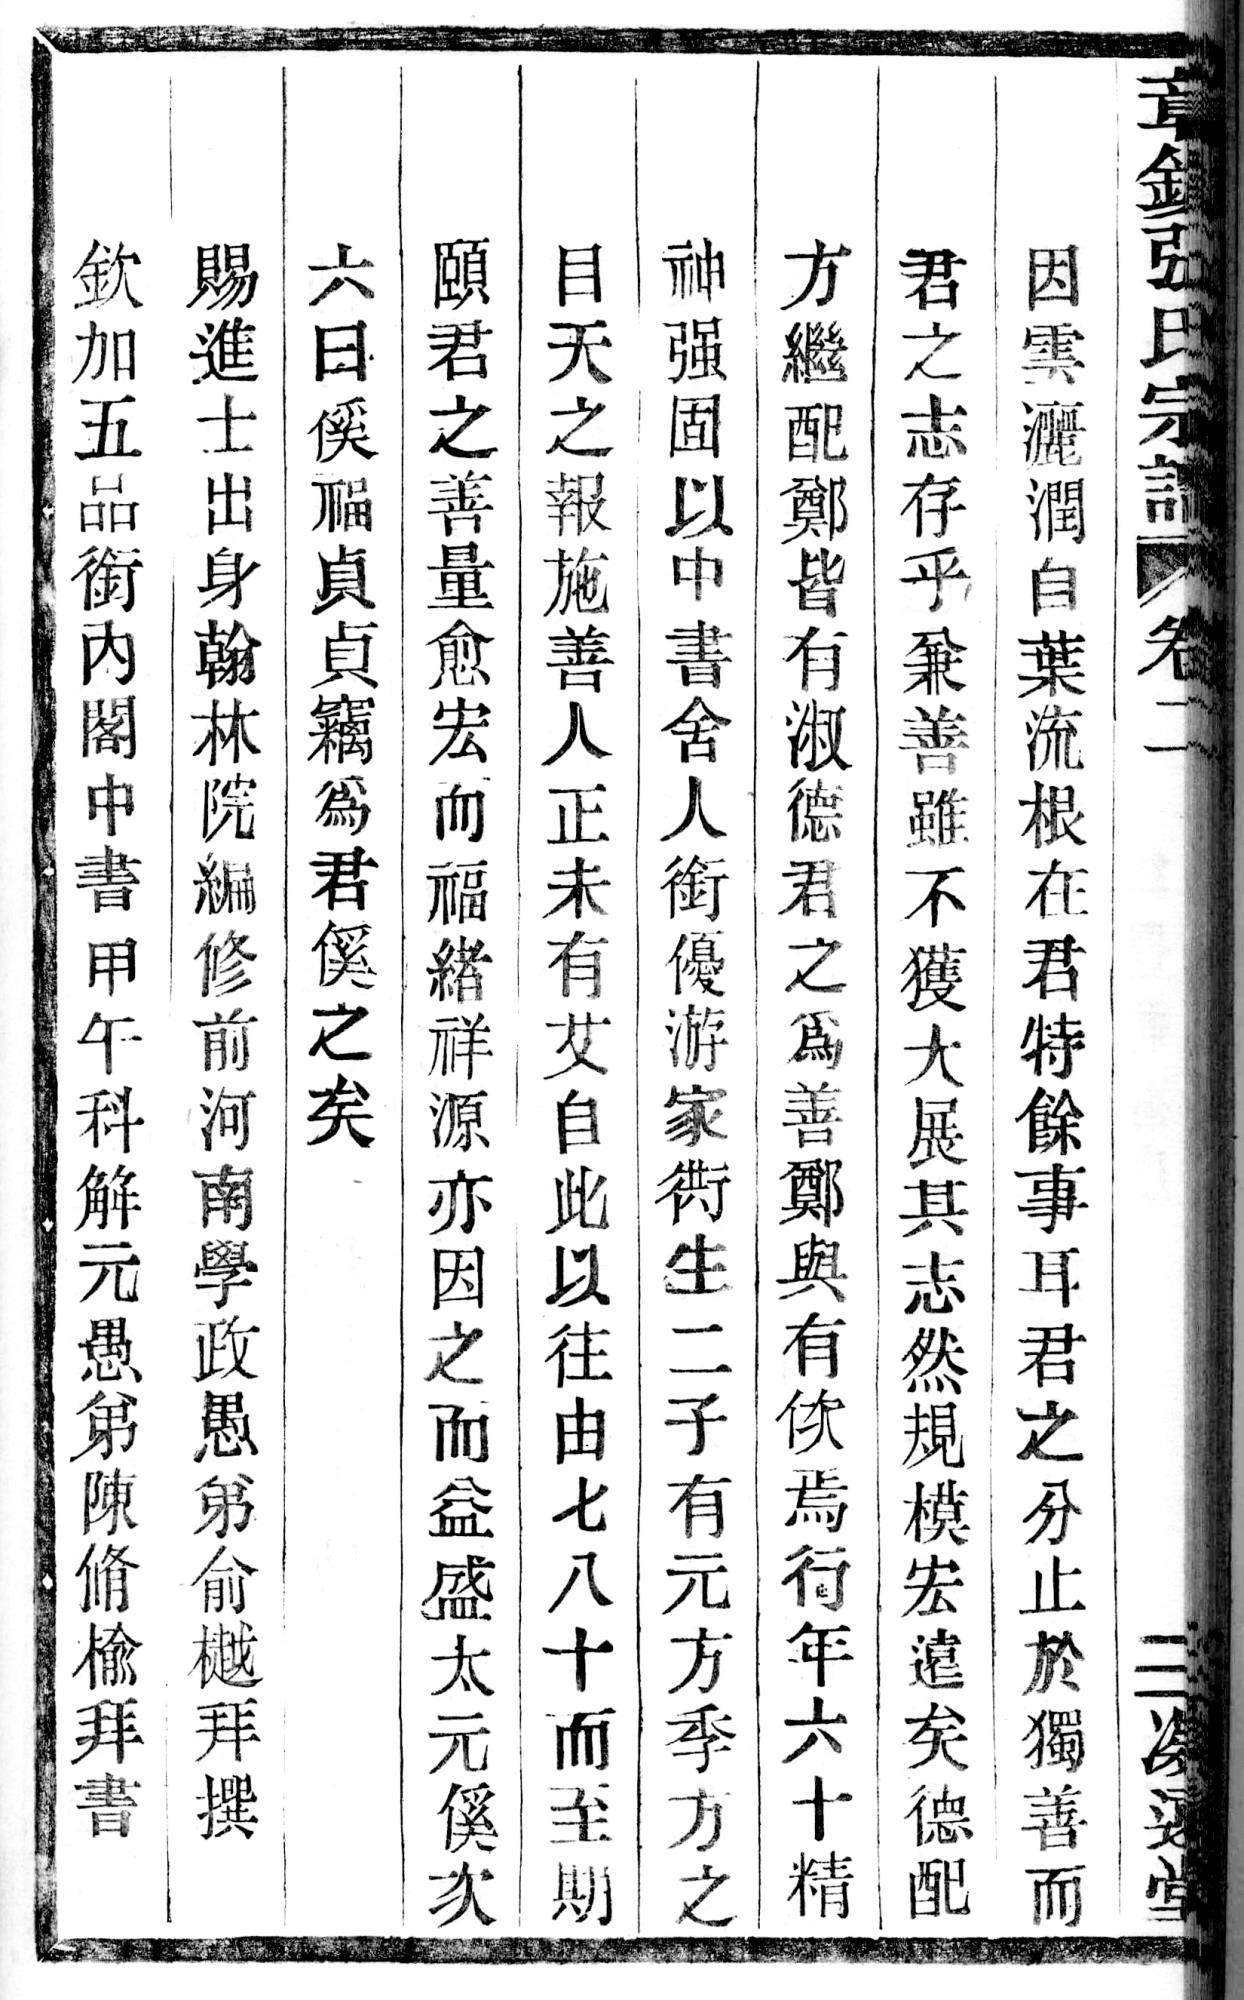 因雲灑潤自葉流根在君特餘事耳君之分止於獨善而
君之志存乎兼善雖不獲大展其志然規模宏遠矣德配
方繼配鄭皆有淑德君之爲善鄭與有佽焉行年六十精
神强固以中書舍人銜優游家衖生二子有元方季方之
目天之報施善人正未有艾自此以往由七八十而至期
頤君之善量愈宏而福緒祥源亦因之而益盛太元傒次
六曰傒福貞貞竊爲君傒之矣
賜進士出身翰林院編修前河南學政愚弟俞樾拜撰
欽加五品銜內閣中書甲午科解元愚弟陳脩榆拜書
張氏宗譜 卷二
三